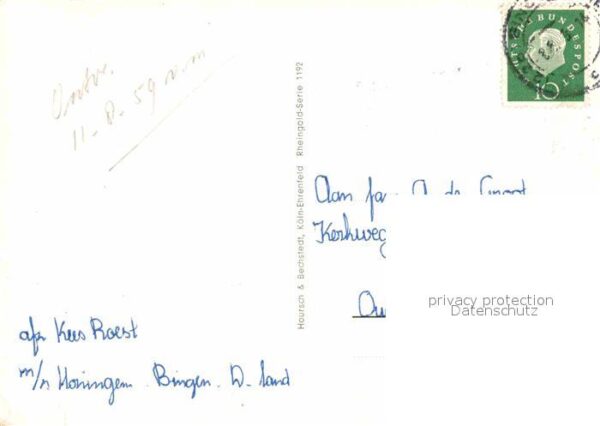 Ontv.
11-8-59 v.m
afz Kees Roest
m/s Honingem. Bingen. D. land
Hoursch & Bechstedt, Köln-Ehrenfeld Rheingold-Serie 1192
DEUTSCHE BUNDESPOST
10
Aan fa.
Kerkweg
Ou
privacy protection
Datenschutz